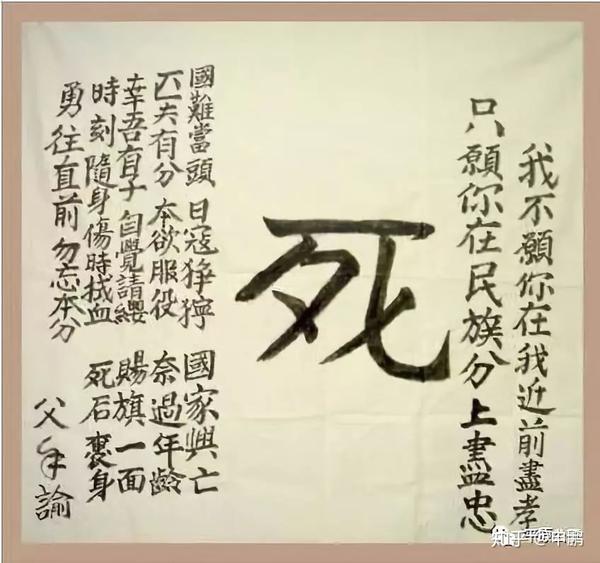 我不願你在我近前盡孝
只願你在民族分上盡忠
死
國難當頭 日寇猙獰 國家興亡
匹夫有分 本欲服役 奈過年齡
幸吾有子 自覺請纓 賜旗一面
時刻隨身 傷時拭血 死后裹身
勇往直前 勿忘本分
父手諭
知乎 @申鹏